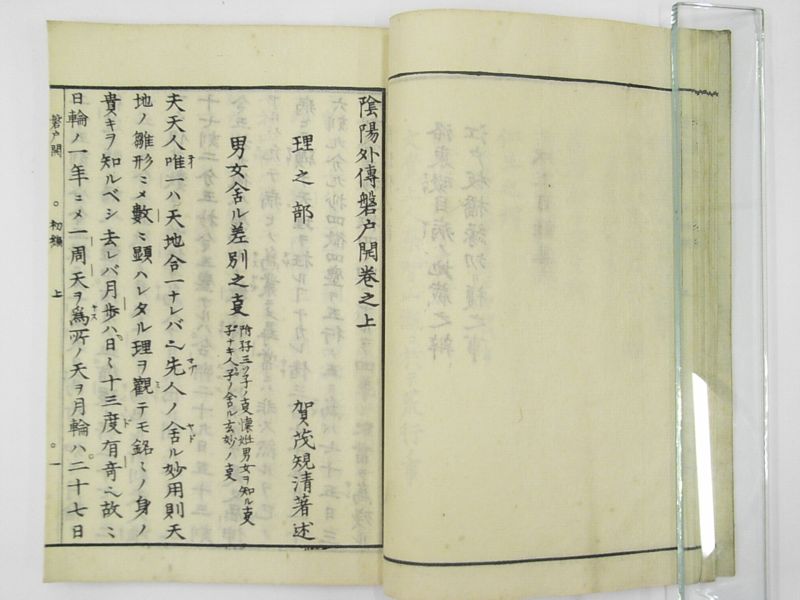 陰陽外傳磐戸開巻之上
理之部
賀茂規清著述
男女舍ル差別之㕝
附孖三ツ子ノ㕝懐姙男女ヲ知ル㕝
子ナキ人子ノ舍ル玄妙ノ㕝
夫天人唯一ハ天地合一ナレバ先人ノ舍ル妙用則天
地ノ雛形ニメ數ニ顕ハレタル理ヲ觀テモ銘ミノ身ノ
貴キヲ知ルベシ去レバ月歩ハ日ミ十三度有竒故ニ
日輪ノ一年ニメ一周天ヲ爲所ノ天ヲ月輪ハ二十七日
磐戸開
初編
上
一